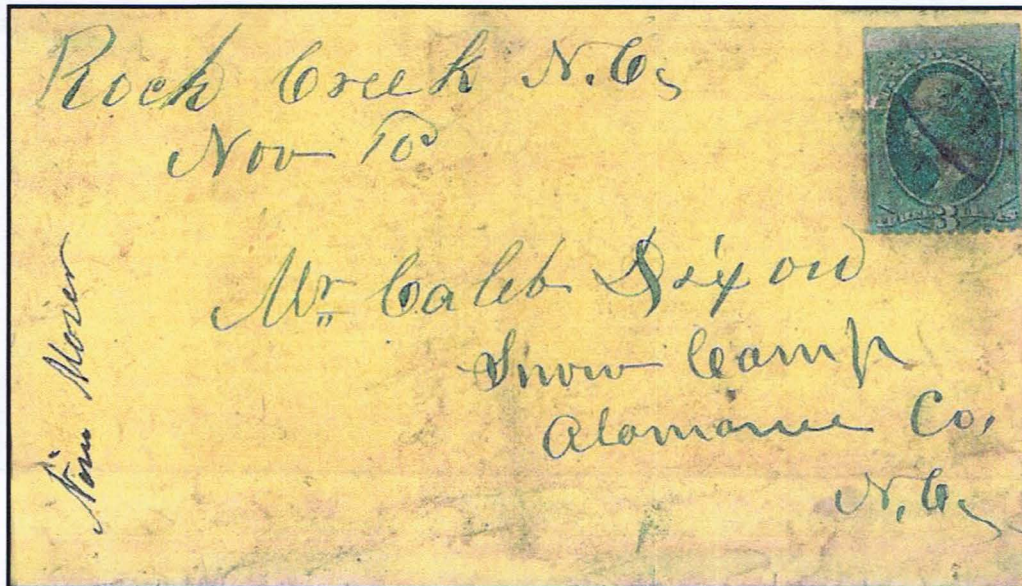 Rock Creek N.C.
Nov 10
Mr. Caleb Dixon
Snow Camp
Alamance Co.
N.C.
Moser
3